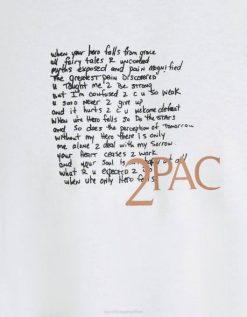 when your hero falls from grace
all fairy tales R uncovered
myths exposed and pain magnified
The greatest pain Discovered
U Taught me 2 Be strong
But I'm confused 2 C U so weak
U said Never 2 give up
and it hurts 2 C U welcome defeat
When ure Hero falls so Do the stars
and so does the perception of Tomorrow
without my Hero there is only
me alone 2 deal with my Sorrow
your Heart ceases 2 work
and your Soul is not happy at all
what R U expected 2 Do
when ure only Hero falls
2PAC